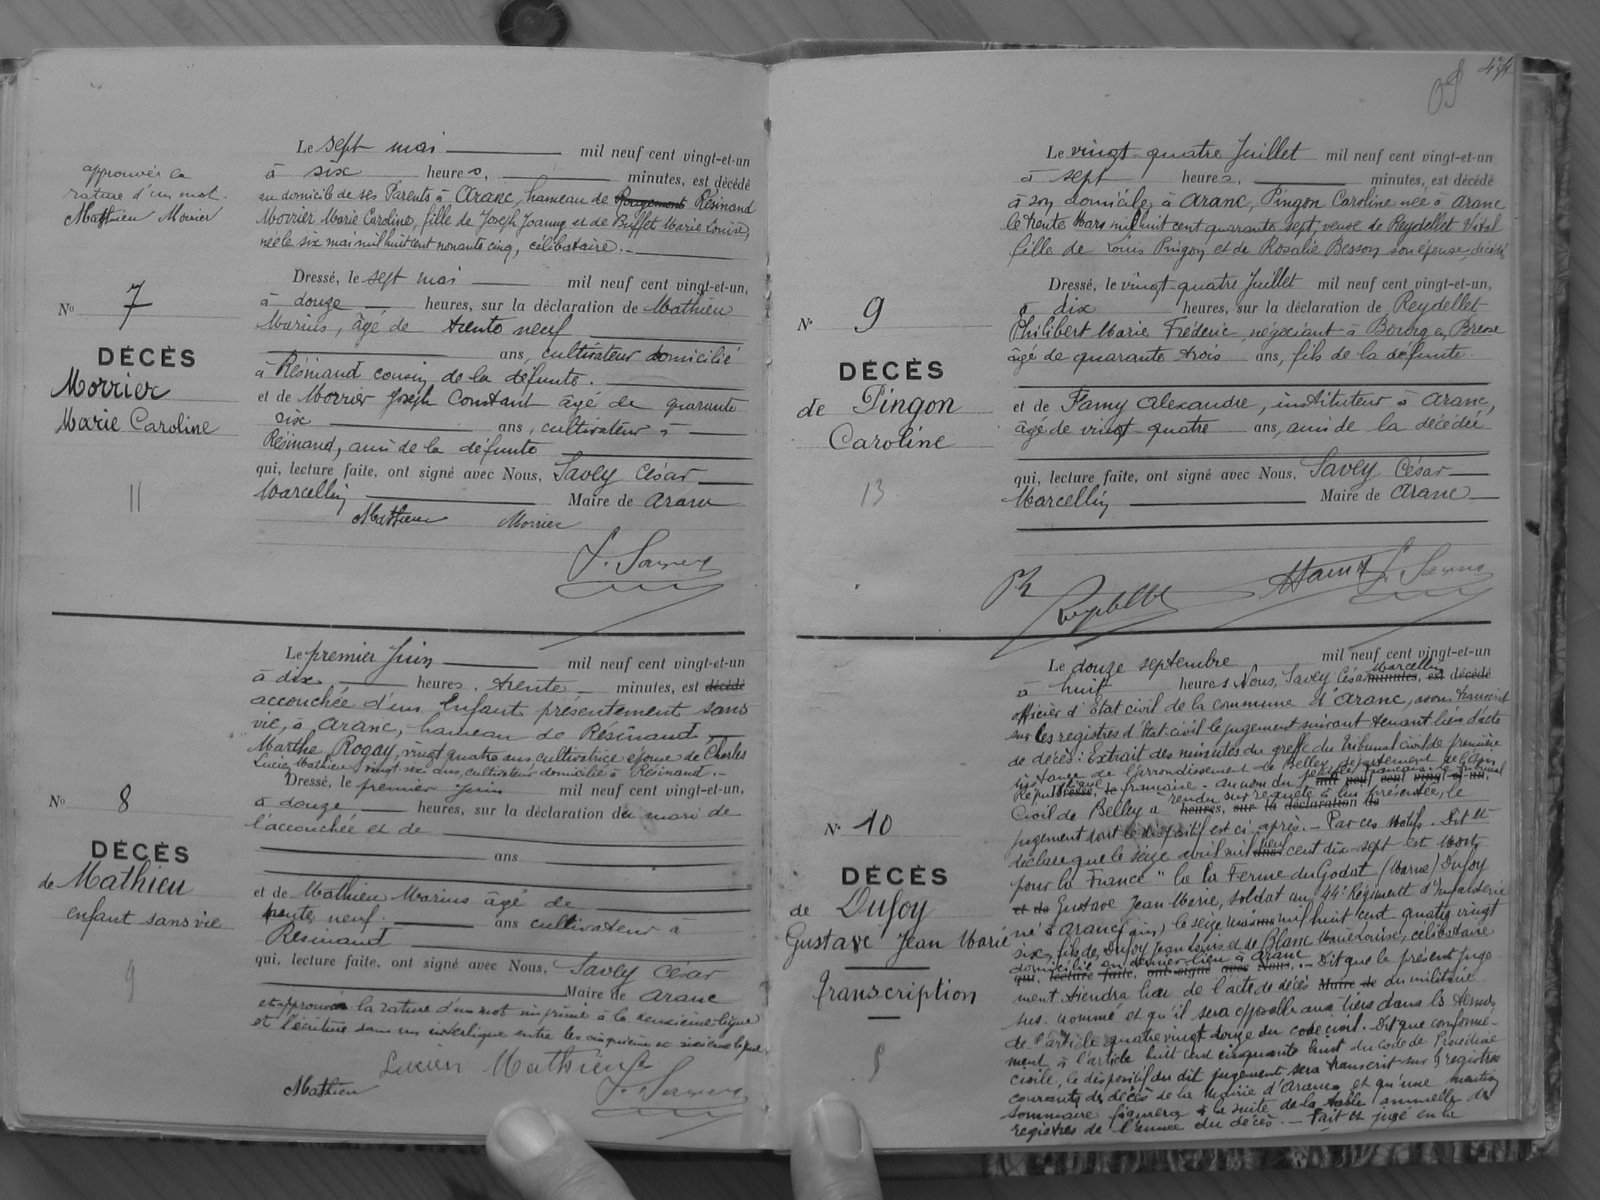 approuvée la
rature d'un mot.
Mathieu Morrier
Le sept mai mil neuf cent vingt-et-un
à six heures, minutes, est décédé
au domicile de ses Parents à Aranc, hameau de Rougemont Résinand
Morrier Marie Caroline, fille de Joseph Joanny et de Buffet Marie Louise,
née le six mai mil huit cent nonante cinq, célibataire.
Dressé, le sept mai mil neuf cent vingt-et-un,
à douze heures, sur la déclaration de Mathieu
Marius, âgé de trente neuf
ans, cultivateur domicilié
à Résinand cousin de la défunte.
et de Morrier Joseph Constant âgé de quarante
six ans, cultivateur à
Résinand, ami de la défunte
qui, lecture faite, ont signé avec Nous, Savey César
Marcellin Maire de Aranc
Mathieu Morrier
No 7
DÉCÈS
Morrier
Marie Caroline
11
Le premier Juin mil neuf cent vingt-et-un
à dix heures trente minutes, est décédé
accouchée d'un Enfant présentement sans
vie, à Aranc, hameau de Résinand
Marthe Rogay, vingt quatre ans cultivatrice épouse de Charles
Lucien Mathieu vingt six ans, cultivateur domicilié à Résinand.
Dressé, le premier Juin mil neuf cent vingt-et-un,
à douze heures, sur la déclaration du mari de
l'accouchée et de
ans
et de Mathieu Marius âgé de
trente neuf ans cultivateur à
Résinand
qui, lecture faite, ont signé avec Nous, Savey César
Maire de Aranc
et approuvé la rature d'un mot imprimé à la deuxième ligne
et l'écriture dans un interligne entre les cinquième et sixième lignes
Lucien Mathieu
Mathieu
No 8
DÉCÈS
de Mathieu
enfant sans vie
9
Le vingt quatre Juillet mil neuf cent vingt-et-un
à sept heures, minutes, est décédé
à son domicile, à Aranc, Pingon Caroline née à Aranc
le trente Mars mil huit cent quarante sept, veuve de Reydellet Vital
fille de Louis Pingon et de Rosalie Besson son épouse, décédés
Dressé, le vingt-quatre Juillet mil neuf cent vingt-et-un,
à dix heures, sur la déclaration de Reydellet
Philibert Marie Fréderic, négociant à Bourg en Bresse
âgé de quarante trois ans, fils de la défunte.
et de Famy Alexandre, instituteur à Aranc,
âgé de vingt quatre ans, ami de la décédée
qui, lecture faite, ont signé avec Nous, Savey César
Marcellin Maire de Aranc
No 9
DÉCÈS
de Pingon
Caroline
13
Le douze septembre mil neuf cent vingt-et-un
à huit heures Nous, Savey César Marcellin minutes, est décédé
officier d'Etat civil de la commune d'Aranc, avons transcrit
sur les registres d'état civil le jugement suivant tenant lieu d'acte
de décès: Extrait des minutes du greffe du Tribunal civil de première
instance de l'arrondissement de Belley, département de l'Ain
République française. Au nom du peuple français. Le tribunal
Civil de Belley a rendu sur requête à lui présentée, le
heures, sur la déclaration de
jugement dont le dispositif est ci après. Par ces Motifs. Dit et
déclare que le seize avril mil neuf cent dix sept est Mort
pour la France "la la Ferme du Godat (Marne) Dufoy
et de Gustave Jean Marie, soldat au 44e Régiment d'Infanterie
né à Aranc (Ain) le seize mil huit cent quatre vingt
six, fils de Dufoy Jean Louis et de Blanc Marie Louise, célibataire
domicilié en dernier lieu à Aranc
qui, lecture faite, ont signé avec Nous, Dit que le présent juge-
ment tiendra lieu de l'acte de décès Maire de du militaire
sus-nommé et qu'il sera opposable aux tiers dans les termes
de l'article quatre vingt douze du code civil. Dit que conformé-
ment à l'article huit cent cinquante huit du Code de Procédure
civile, le dispositif du dit jugement sera transcrit sur registres
courants de décès de la Mairie d'Aranc et qu'une mention
sommaire figurera à la suite de la table annuelle des
registres de l'année du décès. Fait et jugé en la
No 10
DÉCÈS
de Dufoy
Gustave Jean Marie
Transcription